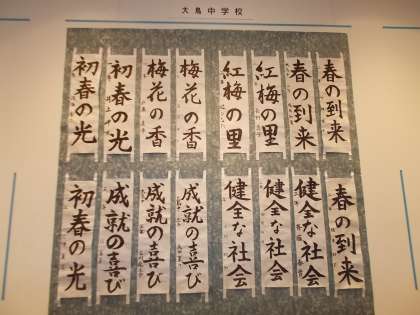 大鳥中学校
春の到来
春の到来
紅梅の里
紅梅の里
梅花の香
梅花の香
初春の光
初春の光
春の到来
健全な社会
健全な社会
健全な社会
成就の喜び
成就の喜び
成就の喜び
初春の光